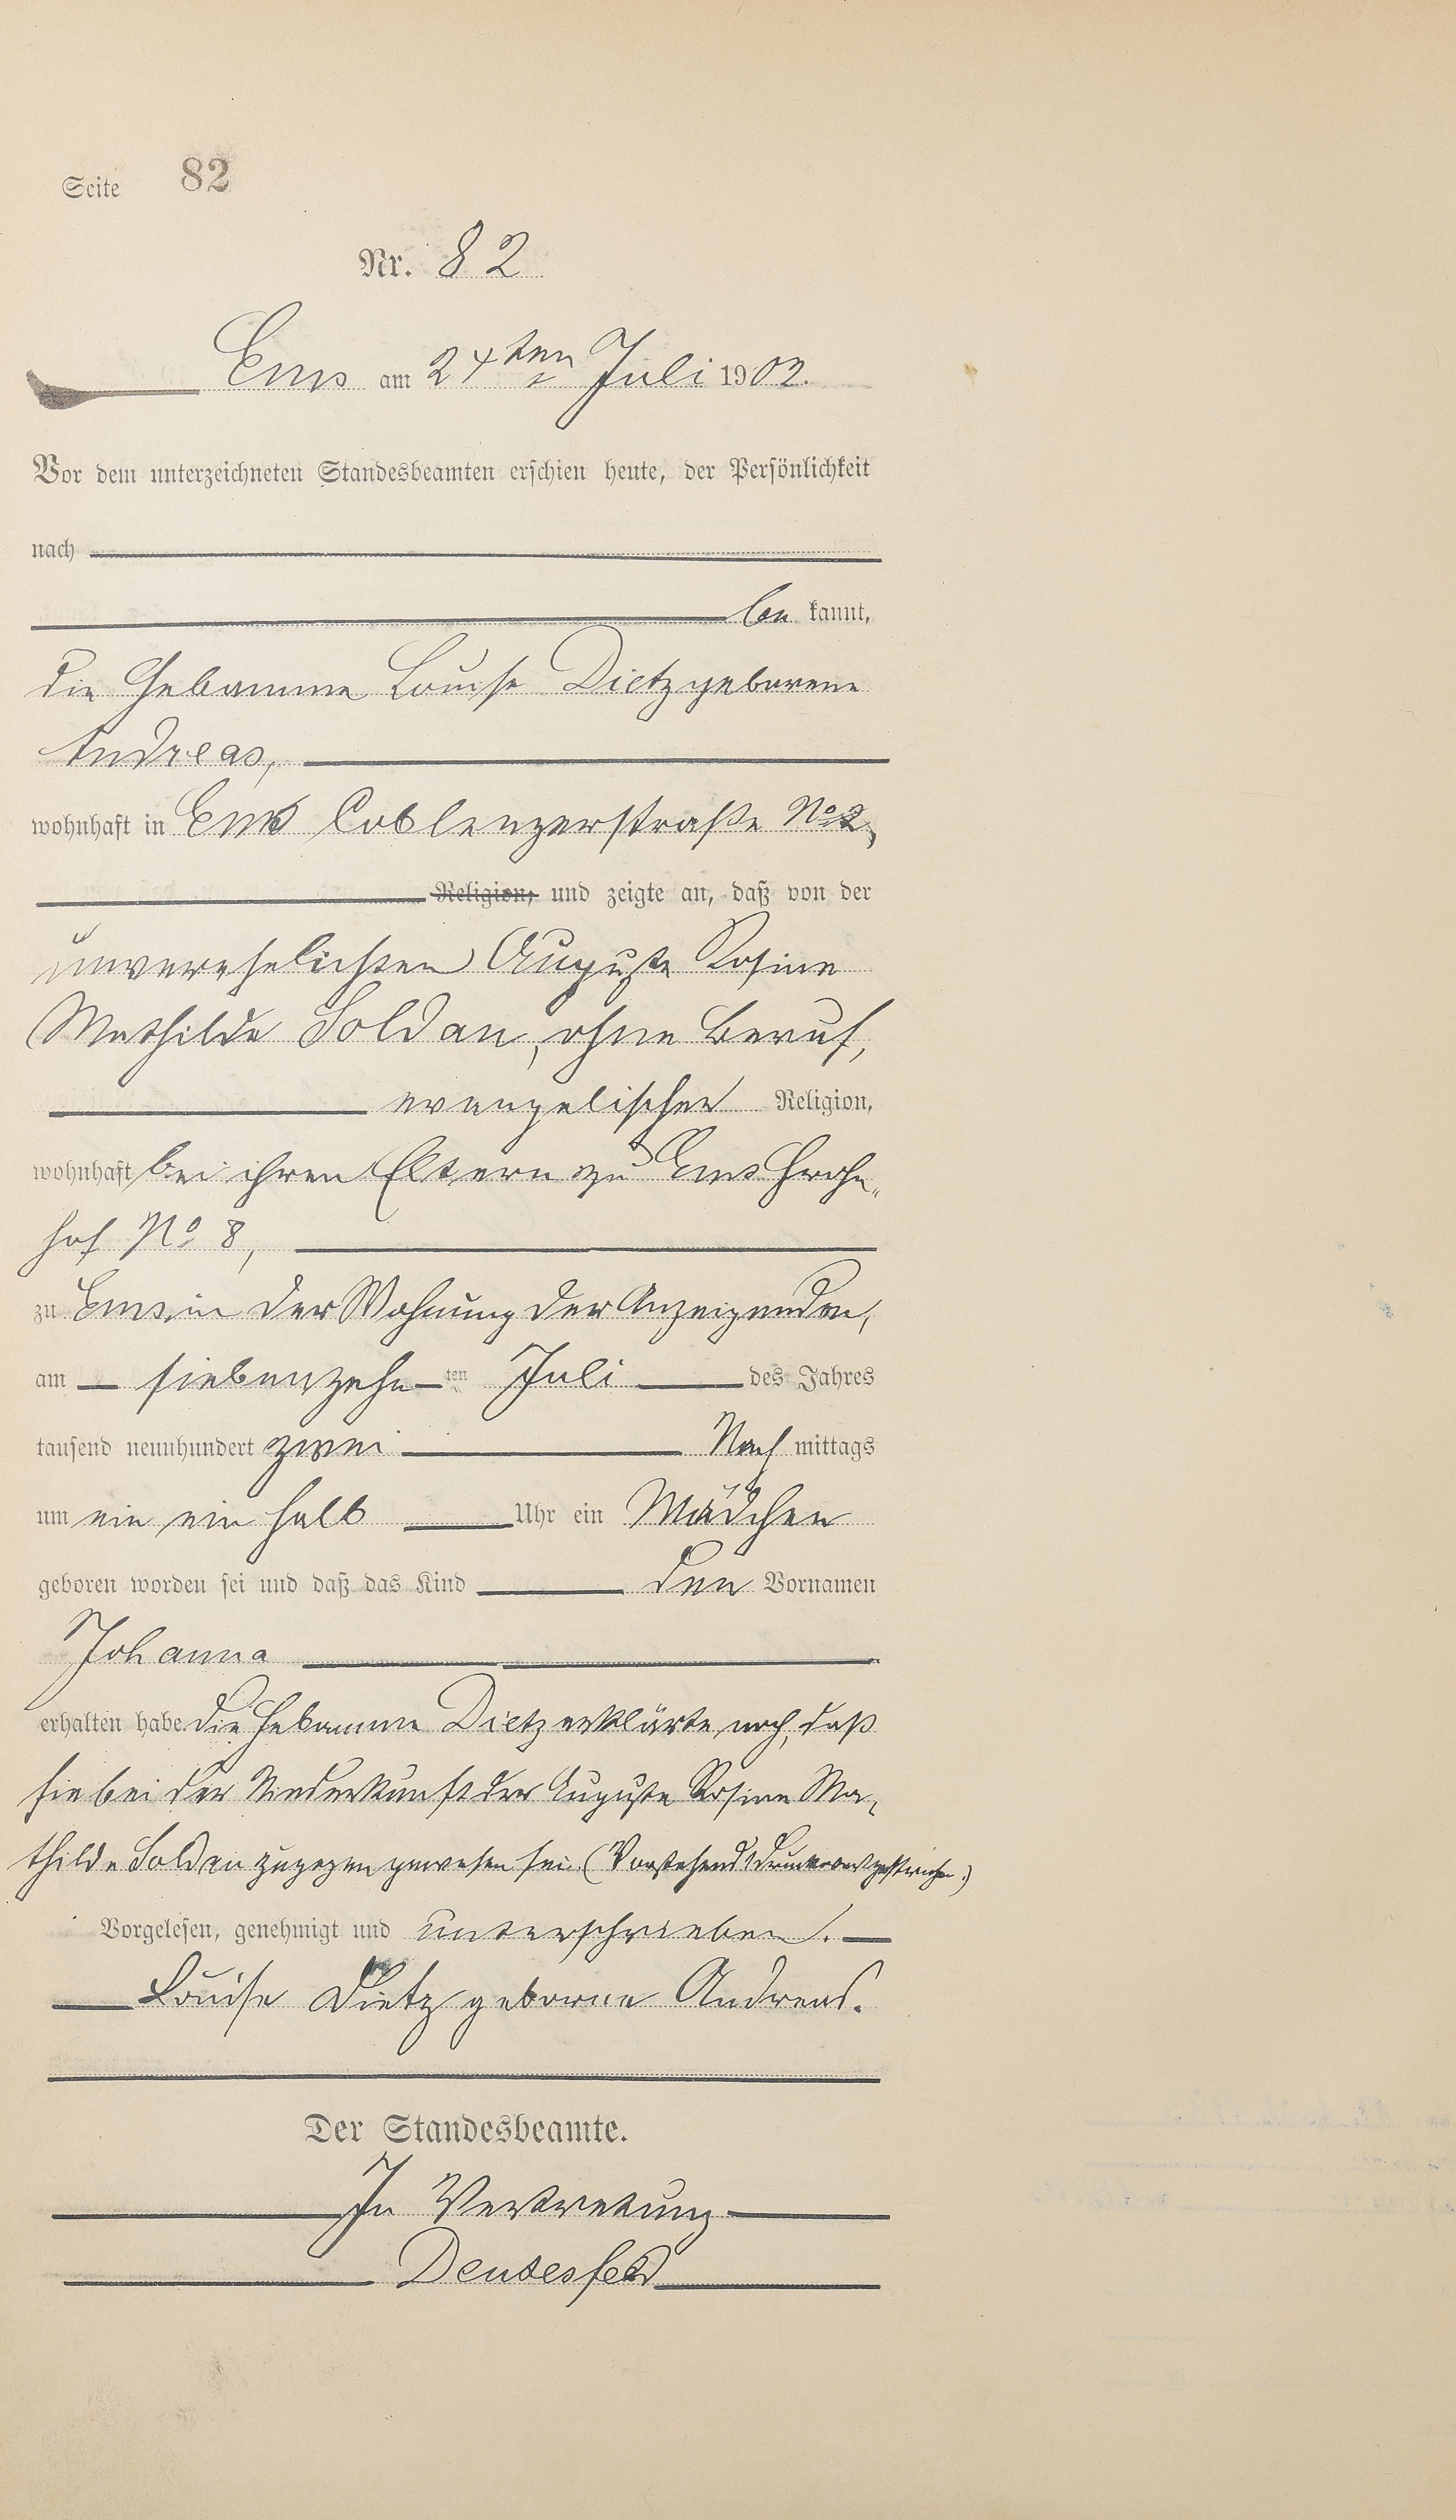 Seite 82
Nr. 82
Ems am 24ten Juli 1902.
Vor dem unterzeichneten Standesbeamten erschien heute, der Persönlichkeit
nach
be kannt,
die Hebamme Louise Dietz geborene
Andreas,
wohnhaft in Ems Coblenzerstraße No 2,
Religion, und zeigte an, daß von der
unverehelichten Auguste Rosine
Mathilde Soldan, ohne Beruf,
evangelischer Religion,
wohnhaft bei ihren Eltern zu Ems Frohn-
hof No 8,
zu Ems, in der Wohnung der Anzeigenden,
am siebenzehn ten Juli des Jahres
tausend neunhundert zwei Nach mittags
um ein ein halb Uhr ein Mädchen
geboren worden sei und daß das Kind den Vornamen
Johanna
erhalten habe die Hebamme Dietz erklärte noch, daß
sie bei der Niederkunft der Auguste Rosine Ma-
thilde Soldan zugegen gewesen sei. (Vorstehend 1 Druckwort gestrichen.)
Vorgelesen, genehmigt und unterschrieben.
Louise Dietz geborne Andreas.
Der Standesbeamte.
In Vertretung